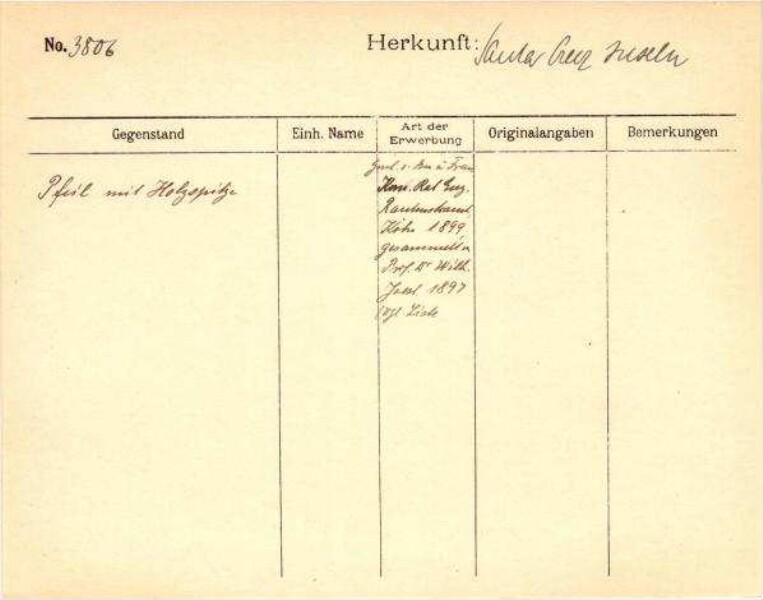 No. 3806
Herkunft: Santa Cruz Inseln
Gegenstand
Einh. Name
Art der
Erwerbung
Originalangaben
Bemerkungen
Pfeil mit Holzspitze
u Frau
Rat Eug.
Rautenstrauch
1899
gesammelt v.
Prof. Dr Wilh.
Joest 1897
Liste